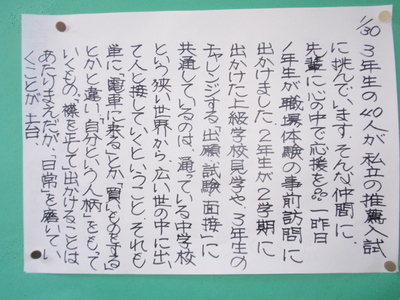 1/30 3年生の40人が私立の推薦入試
に挑んでいます。そんな仲間に、
先輩に心の中で応援を。一昨日
1年生が職場体験の事前訪問に
出かけました。2年生が2学期に
出かけた上級学校見学や、3年生の
チャレンジする「出願」「試験」「面接」に
共通しているのは、通っている中学校
という狭い世界から、広い世の中に出
て人と接していくということ。それも
単に「電車に乗る」とか「買いものをする」
とかと違い「自分という人柄」をもって
いくもの。襟を正して出かけることは
あたりまえだが、日常を磨いてい
くことが土台。